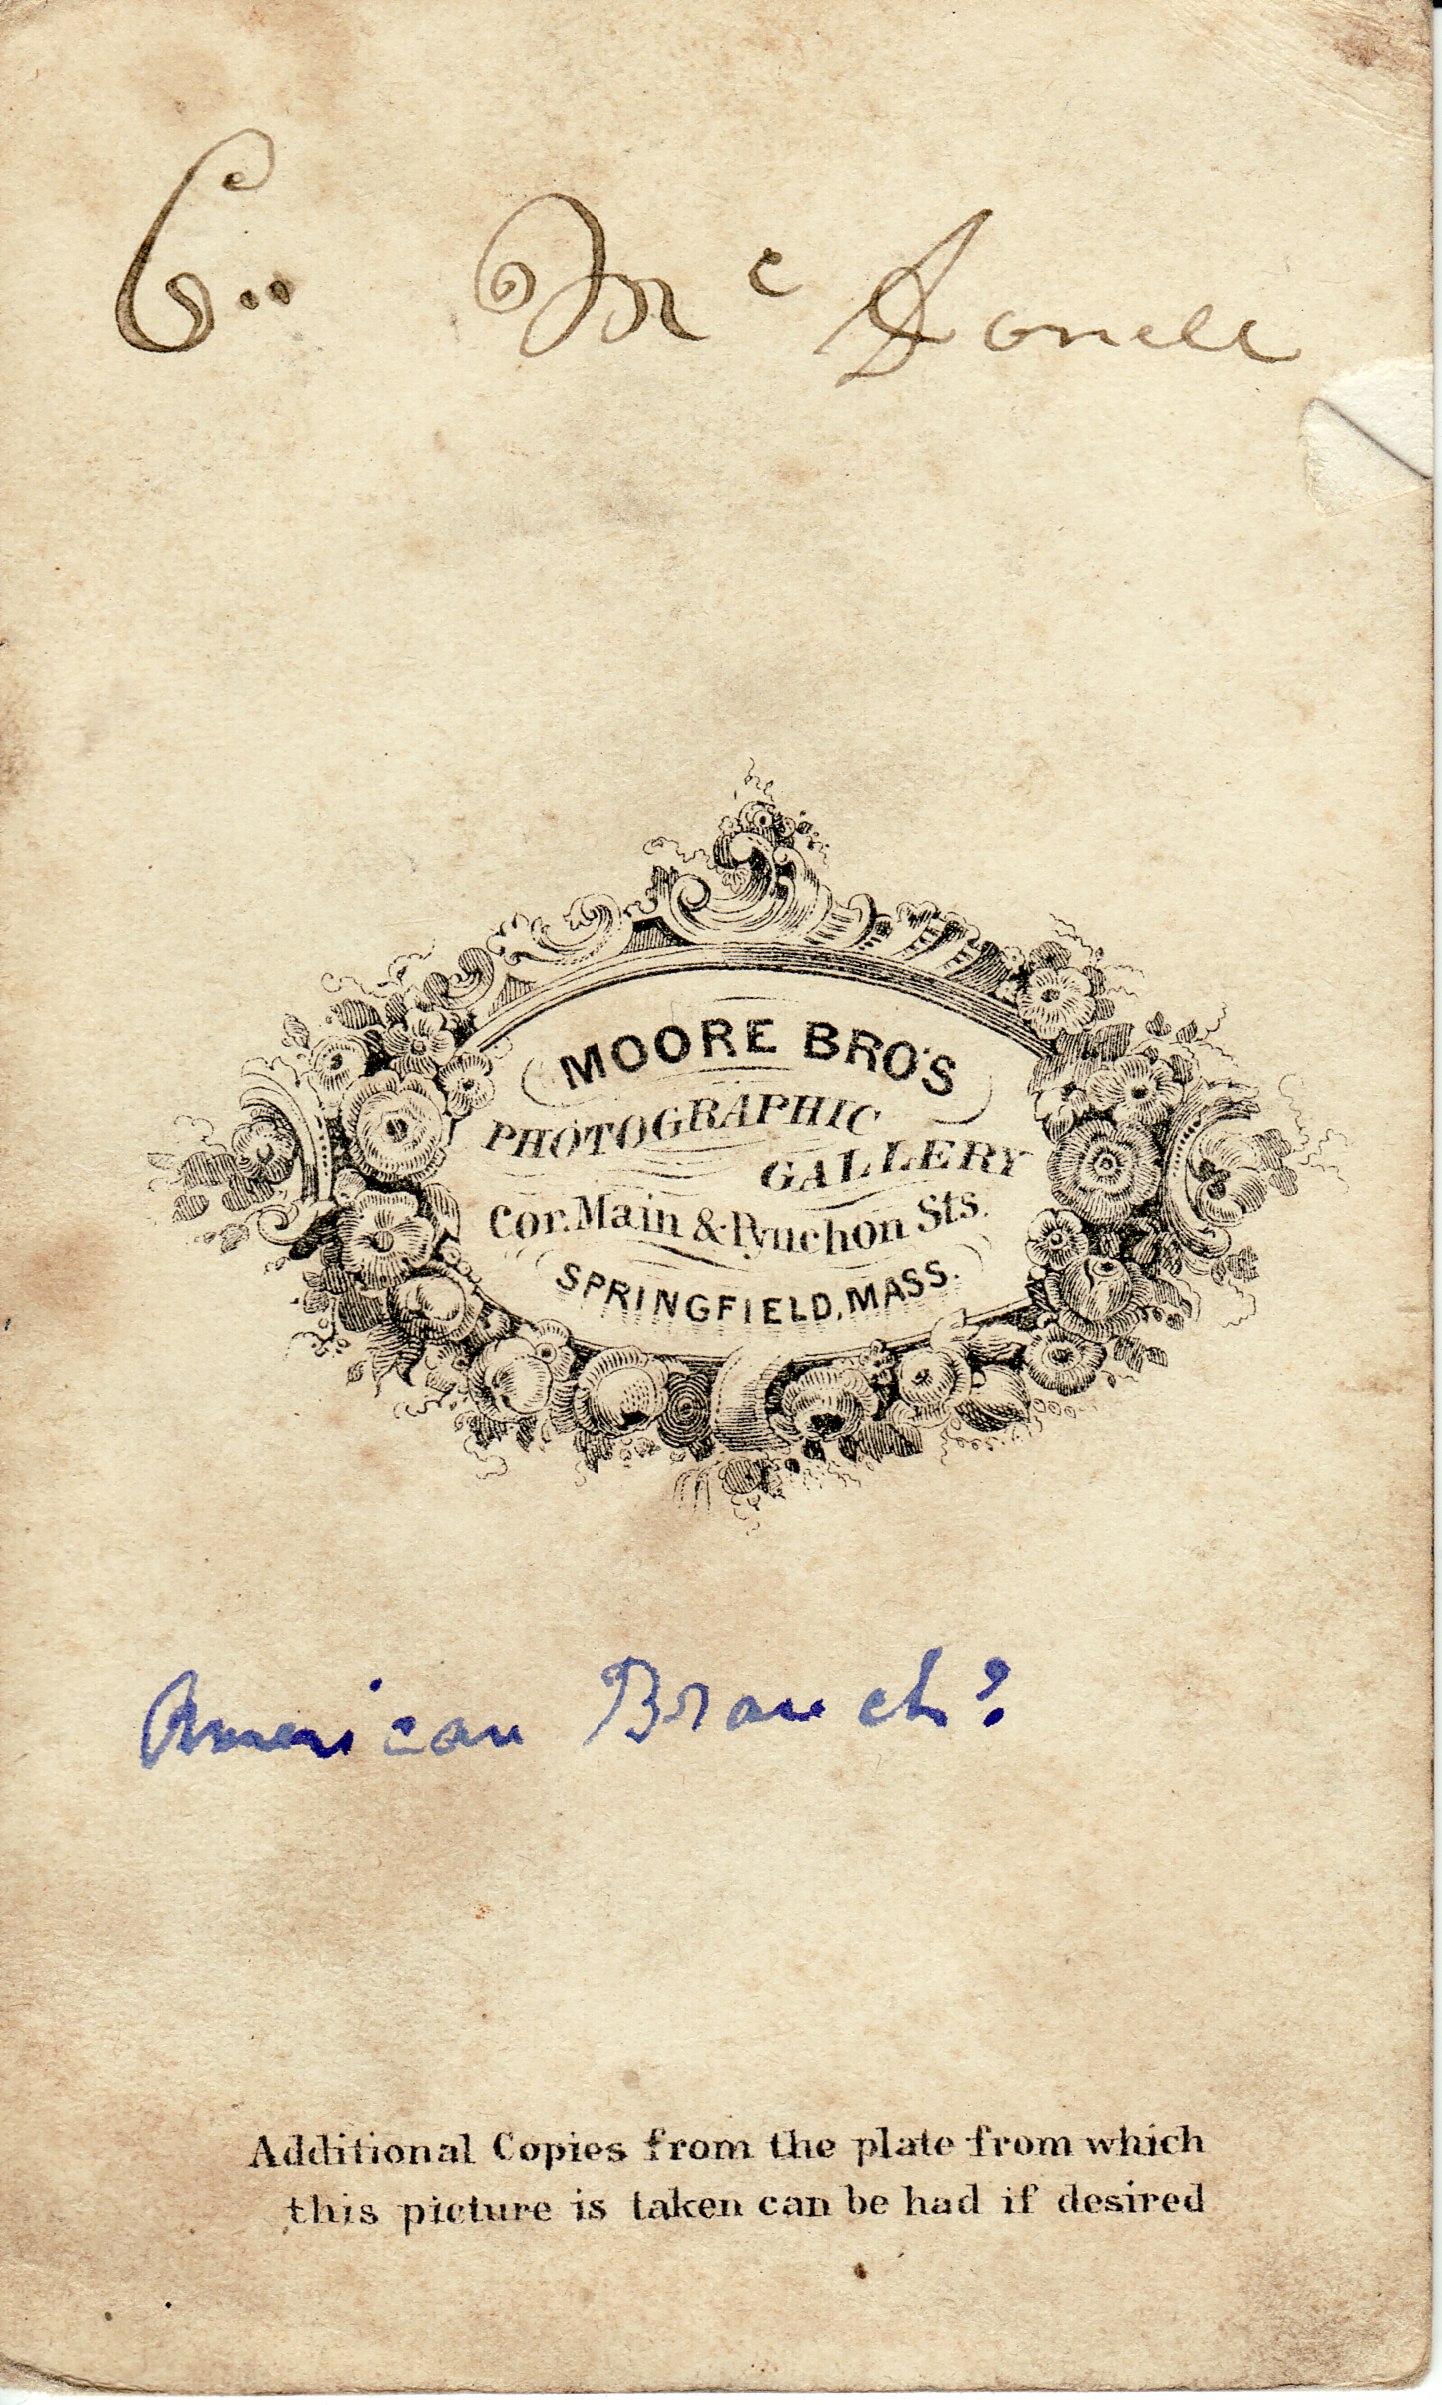 C.. Mc Donell
MOORE BRO'S
PHOTOGRAPHIC
GALLERY
Cor. Main & Pynchon Sts.
SPRINGFIELD, MASS.
American Branch?
Additional Copies from the plate from which
this picture is taken can be had if desired